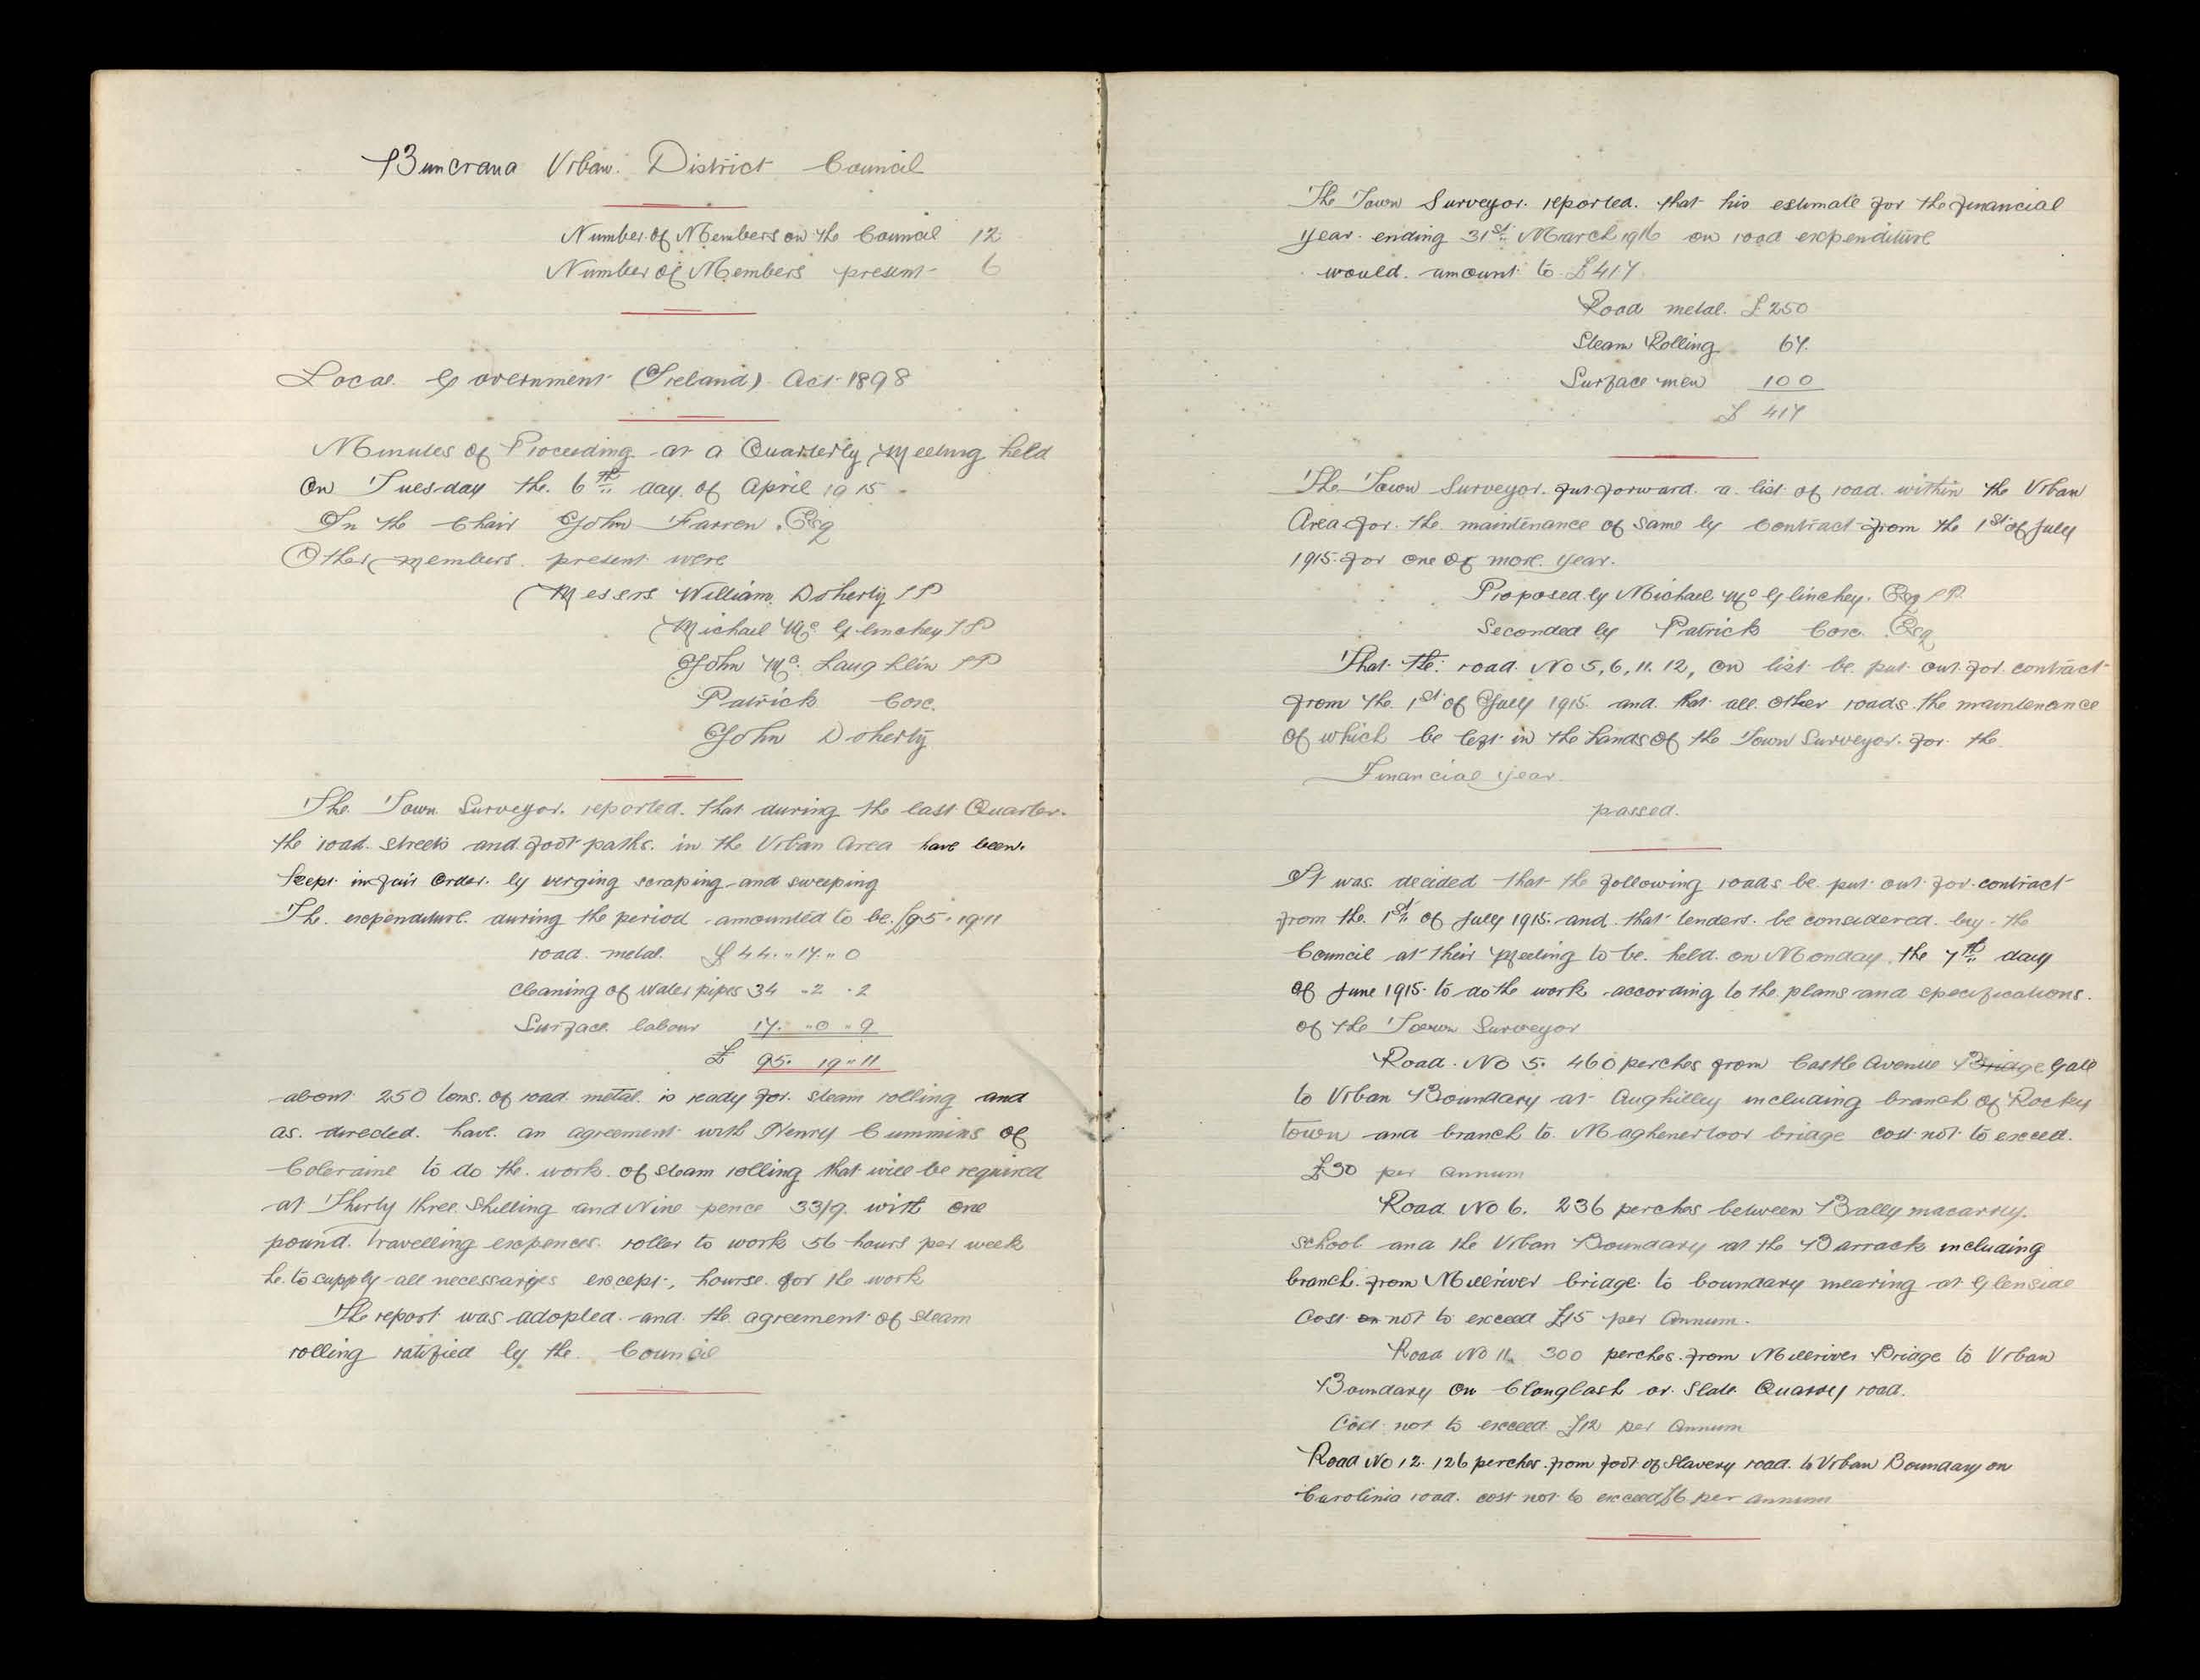 Buncrana Urban District Council
Number of Members on the Council 12
Number of Members present 6
Local Government (Ireland) Act 1898
Minutes of Proceeding at a Quarterly Meeting held
on Tuesday the 6th day of April 1915
In the Chair John Farren Esq
Other members present were
Messrs William Doherty JP
Michael Mc Glinchey JP
John Mc Laughlin JP
Patrick Coxe
John Doherty
The Town Surveyor reported that during the last Quarter
the road streets and foot paths in the Urban Area have been
kept in fair order by verging scraping and sweeping
The expenditure during the period amounted to be £95·19·11
road metal £44 " 17 " 0
cleaning of water pipes 34 " 2 " 2
Surface labour 17 " 0 " 9
£ 95 19 " 11
about 250 tons of road metal is ready for steam rolling and
as directed have an agreement with Henry Cummins of
Coleraine to do the work of steam rolling that will be required
at Thirty three Shilling and Nine pence 33/9 with one
pound travelling expences roller to work 56 hours per week
he to supply all necessaries except, hourse for the work
The report was adopted and the agreement of steam
rolling ratified by the Council
The Town Surveyor reported that his estimate for the financial
year ending 31st March 1916 on road expenditure
would amount to £417
Road metal £250
Steam Rolling 67
Surface men 100
£ 417
The Town Surveyor put forward a list of road within the Urban
Area for the maintenance of same by contract from the 1st of July
1915 for one or more year.
Proposed by Michael Mc Glinchey Esq JP
Seconded by Patrick Coxe Esq
That the road No 5, 6, 11. 12, on list be put out for contract
from the 1st of July 1915 and that all other roads the maintenance
of which be left in the hands of the Town Surveyor for the
Financial year.
passed.
It was decided that the following roads be put out for contract
from the 1st of July 1915 and that tenders be considered by the
Council at their Meeting to be held on Monday the 7th day
of June 1915 to do the work according to the plans and specifications
of the Town Surveyor
Road No 5. 460 perches from Castle Avenue Bridge Gate
to Urban Boundary at Aughilley including branch of Rockey
town and branch to Maghenertoor bridge cost not to exceed
£30 per annum
Road No 6. 236 perches between Ballymacarry
school and the Urban Boundary at the Barrack including
branch from Millriver bridge to boundary mearing at Glenside
Cost on not to exceed £15 per Annum.
Road No 11. 300 perches from Millriver Bridge to Urban
Boundary on Clonglash or Slate Quarry road.
Cost not to exceed £12 per Annum
Road No 12. 126 perches from foot of Slavery road to Urban Boundary on
Carolinia road. cost not to exceed £6 per annum